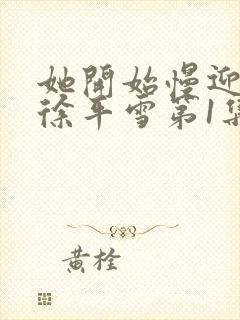 她開始慢迎
徐平雪第1集
黃栓